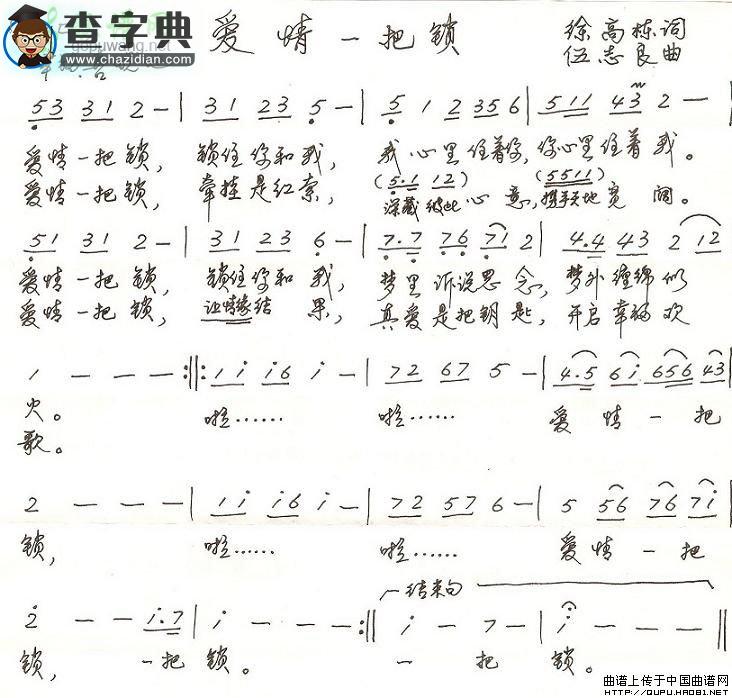 查字典
www.chazidian.com
爱情一把锁
徐高栋词
伍志良曲
53 31 2 - | 31 23 5 - | 5 1 2 35 6 | 511 43 2 - |
爱情一把锁, 锁住你和我, 我心里住着你, 你心里住着我。
(5·1 12) (5511)
爱情一把锁, 牵挂是红索, 深藏彼此心意, 携手天地宽阔。
51 31 2 - | 31 23 6 - | 7·7 76 71 2 | 4·4 43 2 12 |
爱情一把锁, 锁住你和我, 梦里诉说思念, 梦外缠绵似
爱情一把锁, 让情缘结果, 真爱是把钥匙, 开启幸福欢
1 - - - :||: 1i i6 i - | 72 67 5 - | 4·5 6i 656 43 |
火。 啦…… 啦…… 爱情一把
歌。
2 - - - | 1i i6 i - | 72 57 6 - | 5 56 76 7i |
锁, 啦…… 啦…… 爱情一把
结束句
2 - - i·7 | i - - - :|| i - 7 - | i - - - ||
锁, 一把锁。 一把锁。
曲谱上传于中国曲谱网
HTTP://QUPU.HAO81.NET